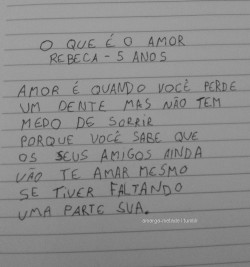 O QUE É O AMOR
REBECA - 5 ANOS
AMOR É QUANDO VOCÊ PERDE
UM DENTE MAS NÃO TEM
MEDO DE SORRIR
PORQUE VOCÊ SABE QUE
OS SEUS AMIGOS AINDA
VÃO TE AMAR MESMO
SE TIVER FALTANDO
UMA PARTE SUA.